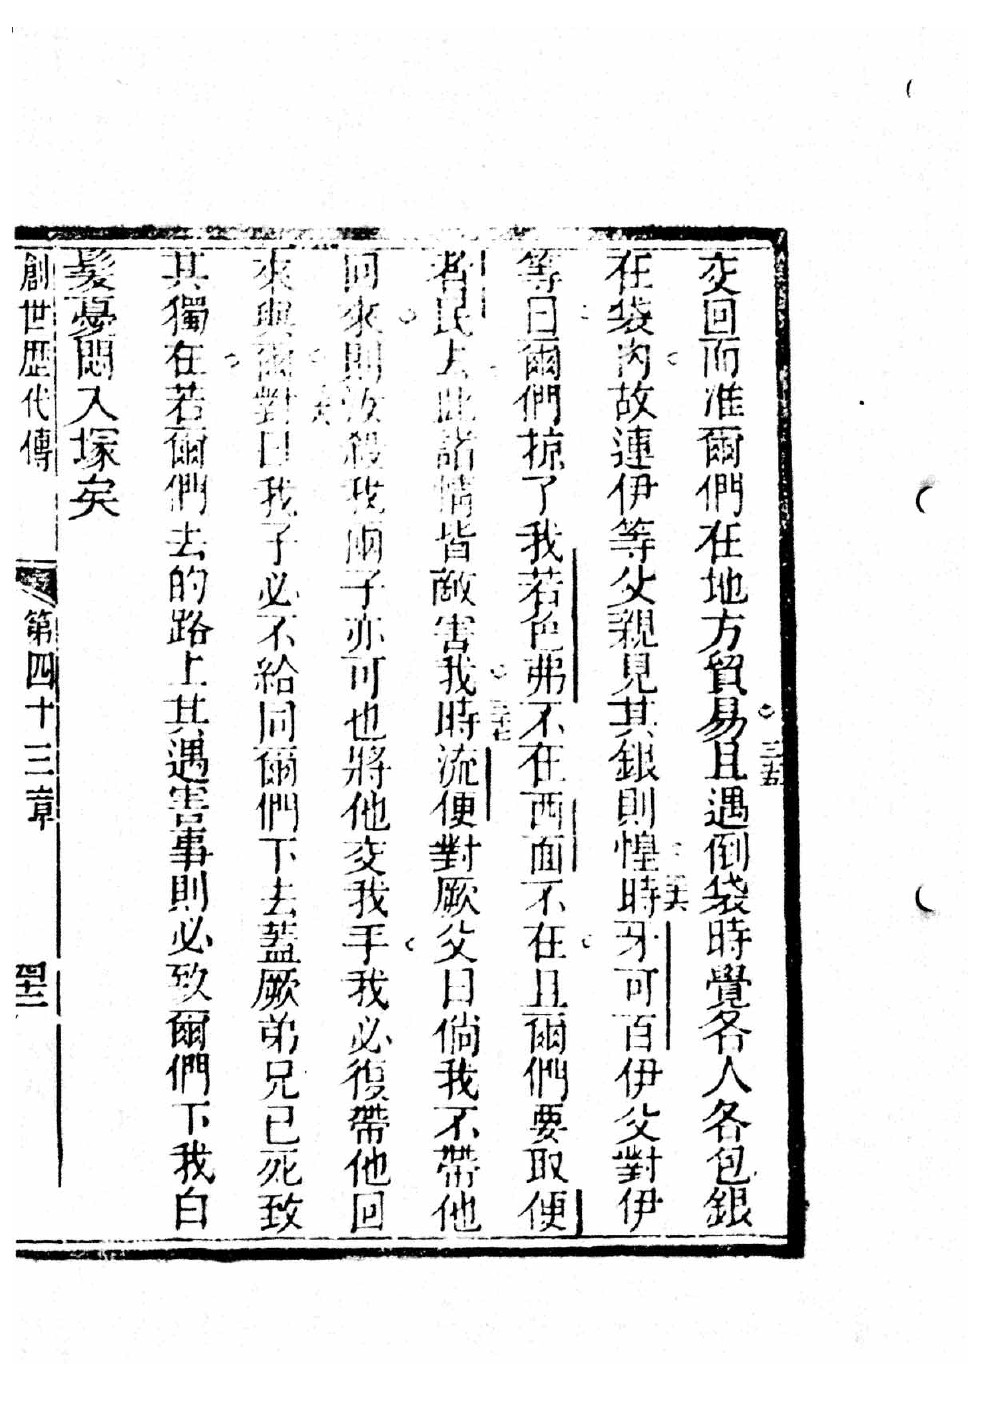 交回而准爾們在地方貿易三五且遇倒袋時覺各人各包銀
在袋內故連伊等父親見其銀則惶時三六牙可百伊父對伊
等曰爾們掠了我若色弗不在西面不在且爾們要取便
者民去此諸情皆敵害我三七時流便對厥父曰倘我不帶他
回來則汝殺我兩子亦可也將他交我手我必復帶他回
來與爾三八對曰我子必不給同爾們下去蓋厥弟兄已死致
其獨在若爾們去的路上其遇害事則必致爾們下我白
髮憂悶入塚矣
創世歷代傳 第四十三章 四十二